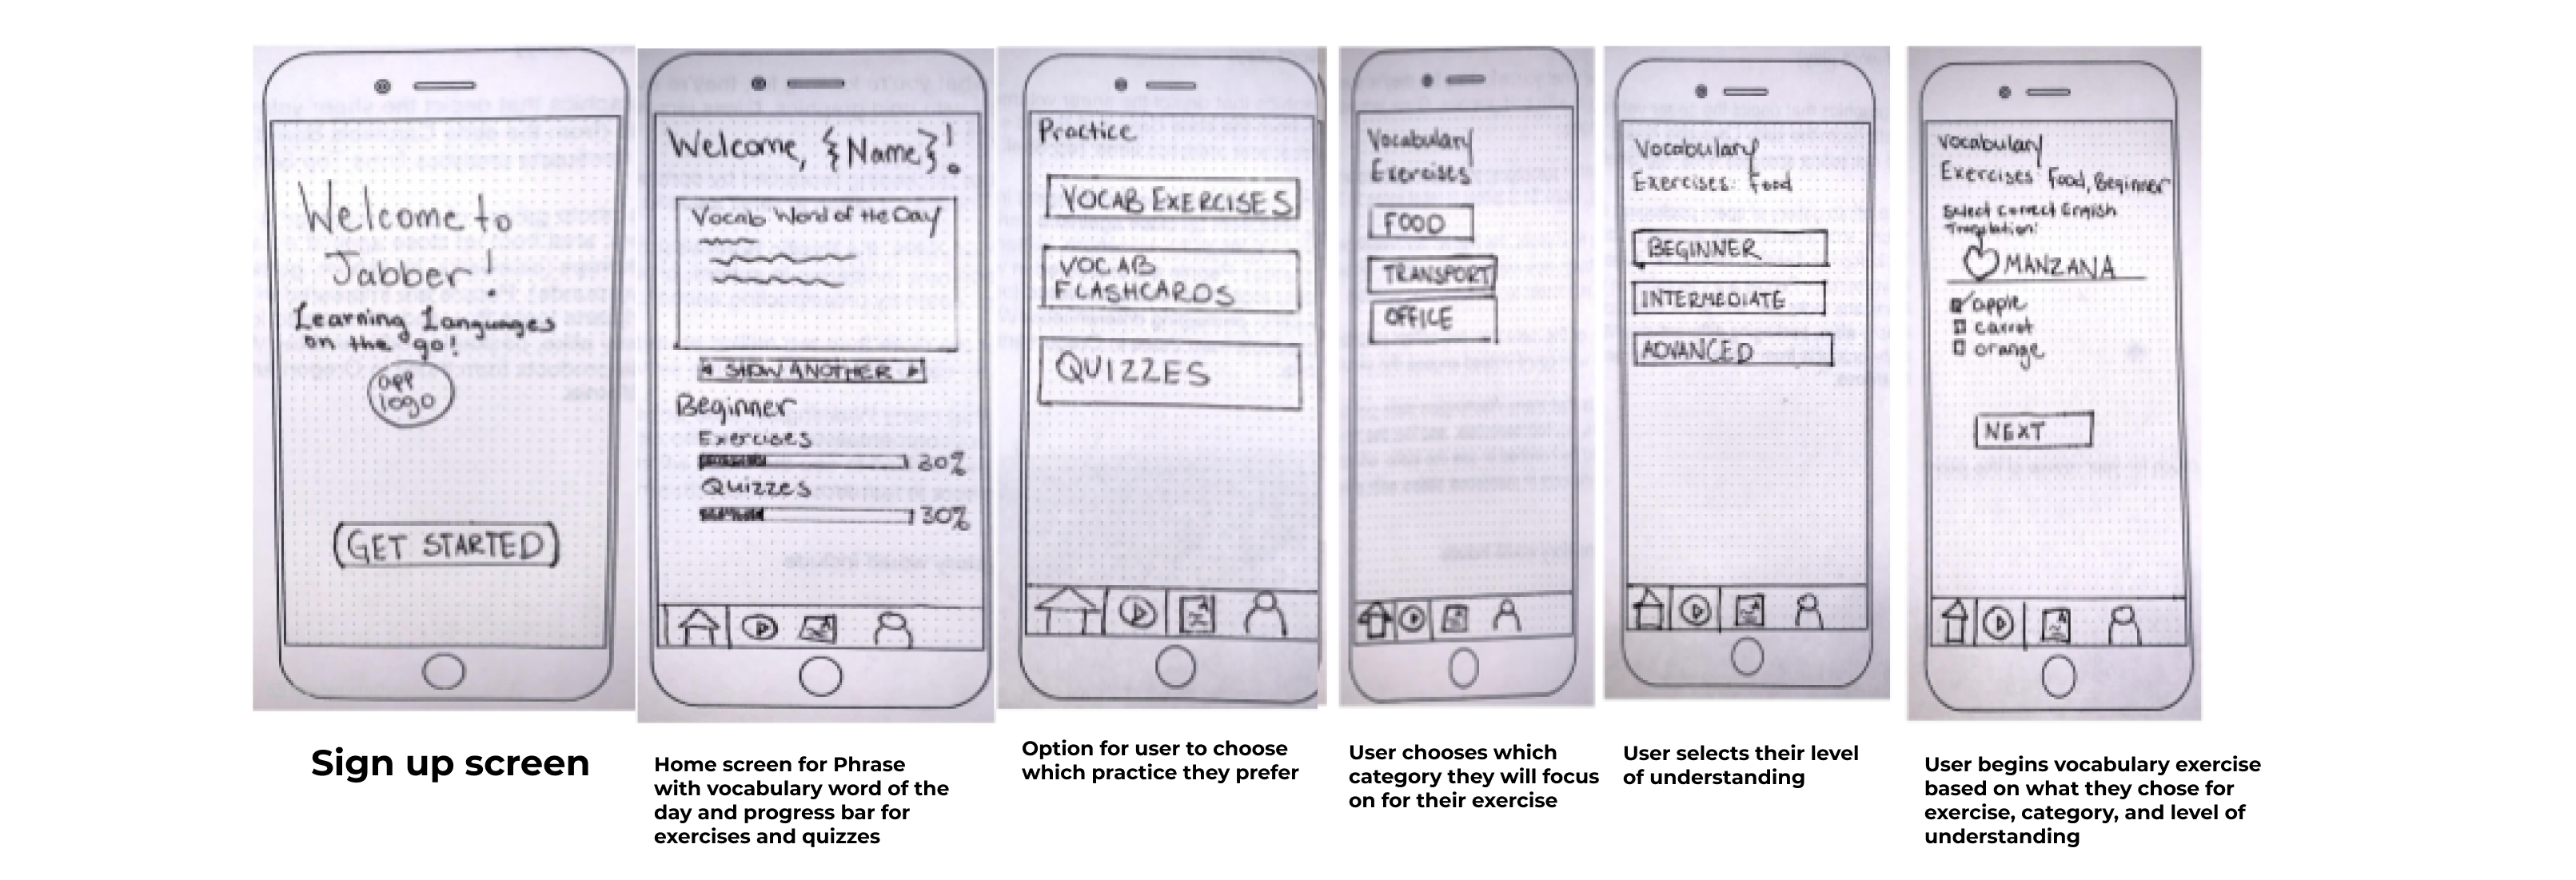 Welcome to
Jabber!
Learning Languages
on the go!
app
logo
GET STARTED
Sign up screen
Welcome, {Name}!
Vocab Word of the Day
SHOW ANOTHER
Beginner
Exercises
30%
Quizzes
30%
Home screen for Phrase
with vocabulary word of the
day and progress bar for
exercises and quizzes
Practice
VOCAB EXERCISES
VOCAB
FLASHCARDS
QUIZZES
Option for user to choose
which practice they prefer
Vocabulary
Exercises
FOOD
TRANSPORT
OFFICE
User chooses which
category they will focus
on for their exercise
Vocabulary
Exercises: Food
BEGINNER
INTERMEDIATE
ADVANCED
User selects their level
of understanding
Vocabulary
Exercises: Food, Beginner
Select correct English
Translation:
MANZANA
apple
carrot
orange
NEXT
User begins vocabulary exercise
based on what they chose for
exercise, category, and level of
understanding